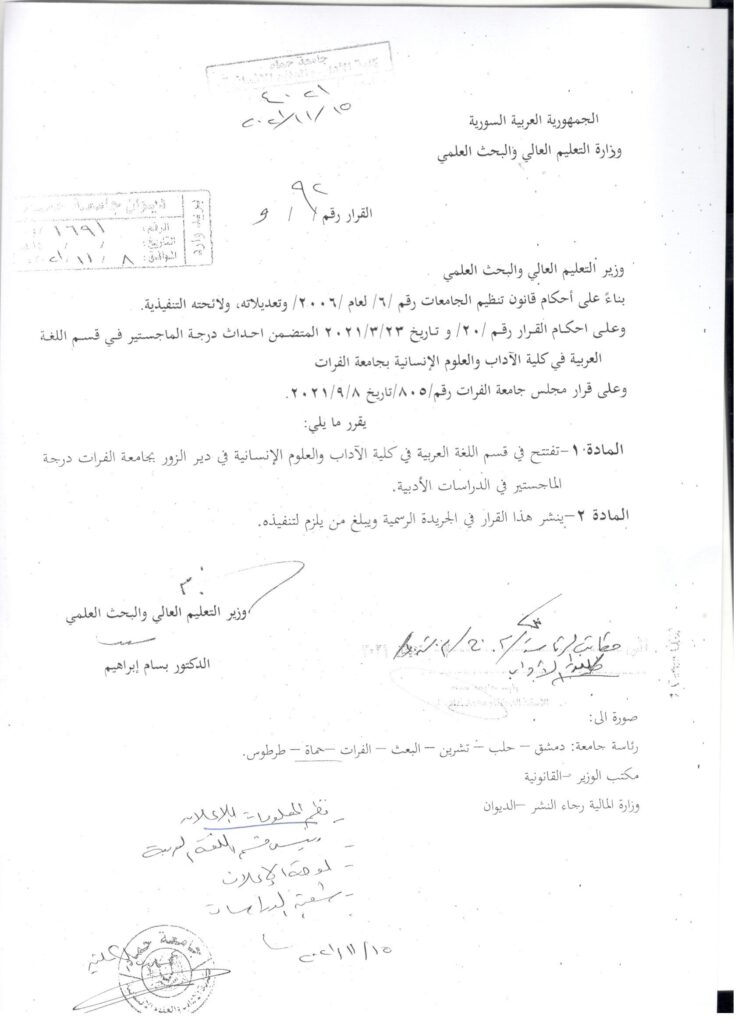 جامعة حماه
٤٠٢١
٢٠٢١/١١/١٥
الجمهورية العربية السورية
وزارة التعليم العالي والبحث العلمي
القرار رقم /٩٢/ و
ديوان جامعة حماه
بريد وارد
الرقم: ١٦٩١
التاريخ: / /
الموافق: ٨ /١١/
وزير التعليم العالي والبحث العلمي
بناءً على أحكام قانون تنظيم الجامعات رقم /٦/ لعام /٢٠٠٦/ وتعديلاته، ولائحته التنفيذية.
وعلى احكام القرار رقم /٢٠/ و تاريخ ٢٠٢١/٣/٢٣ المتضمن احداث درجة الماجستير في قسم اللغة
العربية في كلية الآداب والعلوم الإنسانية بجامعة الفرات
وعلى قرار مجلس جامعة الفرات رقم/٨٠٥/تاريخ ٢٠٢١/٩/٨.
يقرر ما يلي:
المادة ١-تفتتح في قسم اللغة العربية في كلية الآداب والعلوم الإنسانية في دير الزور بجامعة الفرات درجة
الماجستير في الدراسات الأدبية.
المادة ٢-ينشر هذا القرار في الجريدة الرسمية ويبلغ من يلزم لتنفيذه.
وزير التعليم العالي والبحث العلمي
الدكتور بسام إبراهيم
الآداب
صورة الى:
رئاسة جامعة: دمشق – حلب – تشرين – البعث – الفرات –حماة – طرطوس.
مكتب الوزير –القانونية
وزارة المالية رجاء النشر –الديوان
- نظم المعلومات للإعلان
- رئيس قسم اللغة العربية
- لوحة الإعلان
- شعبة الدراسات
٢٠٢١/١١/١٥
جامعة حماه